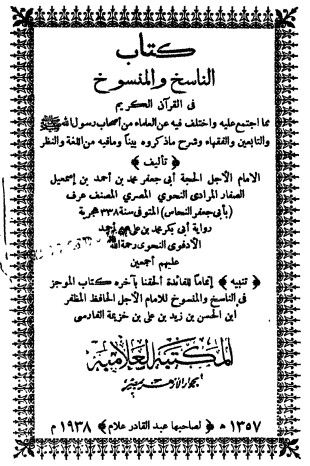 كتاب
الناسخ والمنسوخ
فى القرآن الكريم
مما اجتمع عليه واختلف فيه عن العلماء من أصحاب رسول الله ﷺ
والتابعين والفقهاء وشرح ماذكروه بيناً ومافيه من اللغة والنظر
﴿ تأليف ﴾
الامام الأجل الحجة أبى جعفر محمد بن أحمد بن إسمعيل
الصفار المرادى النحوى المصرى المصنف عرف
(بأبى جعفر النحاس) المتوفى سنة ٣٣٨ هجرية
رواية أبى بكر محمد بن على بن أحمد
الأدفوى النحوى رحمة الله
عليهم أجمعين
﴿ تنبيه ﴾ إتماماً للفائدة ألحقنا بآخره كتاب الموجز
فى الناسخ والمنسوخ للامام الأجل الحافظ المظفر
ابن الحسن بن زيد بن على بن خزيمة الفارسى
المكتبة العلامية
بجوار الأزهر بمصر
١٣٥٧ ه ﴿ لصاحبها عبد القادر علام ﴾ ١٩٣٨ م